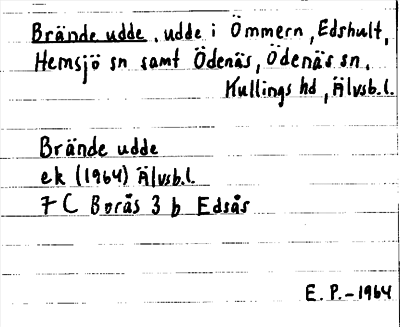 Brände udde, udde i Ömmern, Edshult,
Hemsjö sn samt Ödenäs, Ödenäs sn.
Kullings hd, Älvsb.l.
Brände udde
ek (1964) Älvsb.l.
7 C Borås 3 b Edsås
E. P. - 1964